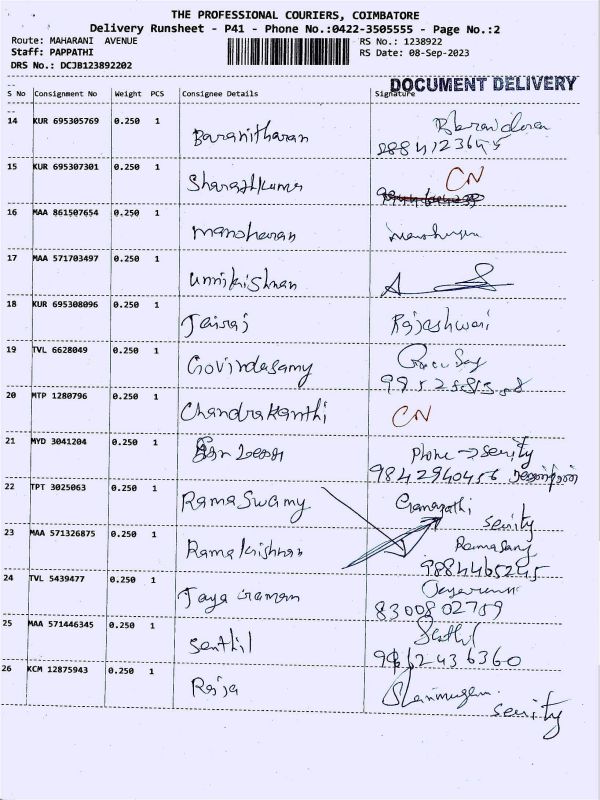 THE PROFESSIONAL COURIERS, COIMBATORE
Delivery Runsheet - P41 - Phone No.:0422-3505555 - Page No.:2
Route: MAHARANI AVENUE
RS No.: 1238922
Staff: PAPPATHI
RS Date: 08-Sep-2023
DRS No.: DCJB123892202
DOCUMENT DELIVERY
S No Consignment No Weight PCS Consignee Details Signature
14 KUR 695305769 0.250 1 Baranitharan
15 KUR 695307301 0.250 1 Sharathkumar CN
16 MAA 861507654 0.250 1 manoharan
17 MAA 571703497 0.250 1 Unnikishnan
18 KUR 695308096 0.250 1 Jairaj Rajeshwari
19 TVL 6628049 0.250 1 Govindasamy
20 MTP 1280796 0.250 1 Chandrakanthi CN
21 MYD 3041204 0.250 1 Phone → Serity
9842940456
22 TPT 3025063 0.250 1 Ramaswamy Ganapathi
serity
23 MAA 571326875 0.250 1 Ramakrishnan Ramasamy
9884465245
24 TVL 5439477 0.250 1 Jayaraman
8300802759
25 MAA 571446345 0.250 1 Senthil Senthil
26 KCM 12875943 0.250 1 Raja Shanmugam
serity